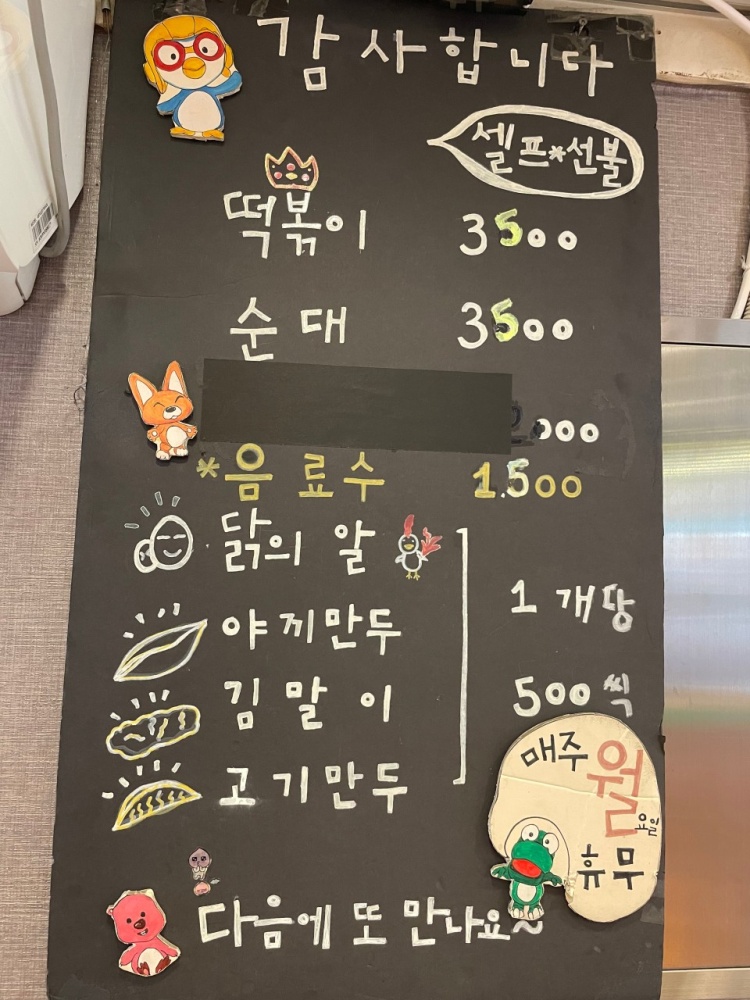 감사합니다
셀프*선불
떡볶이 3500
순대 3500
000
*음료수 1.500
닭의 알
야끼만두
김말이
고기만두
1개당
500씩
매주 월요일
휴무
다음에 또 만나요~